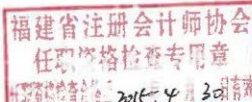 福建省注册会计师协会
任职资格检查专用章
2015.4 30